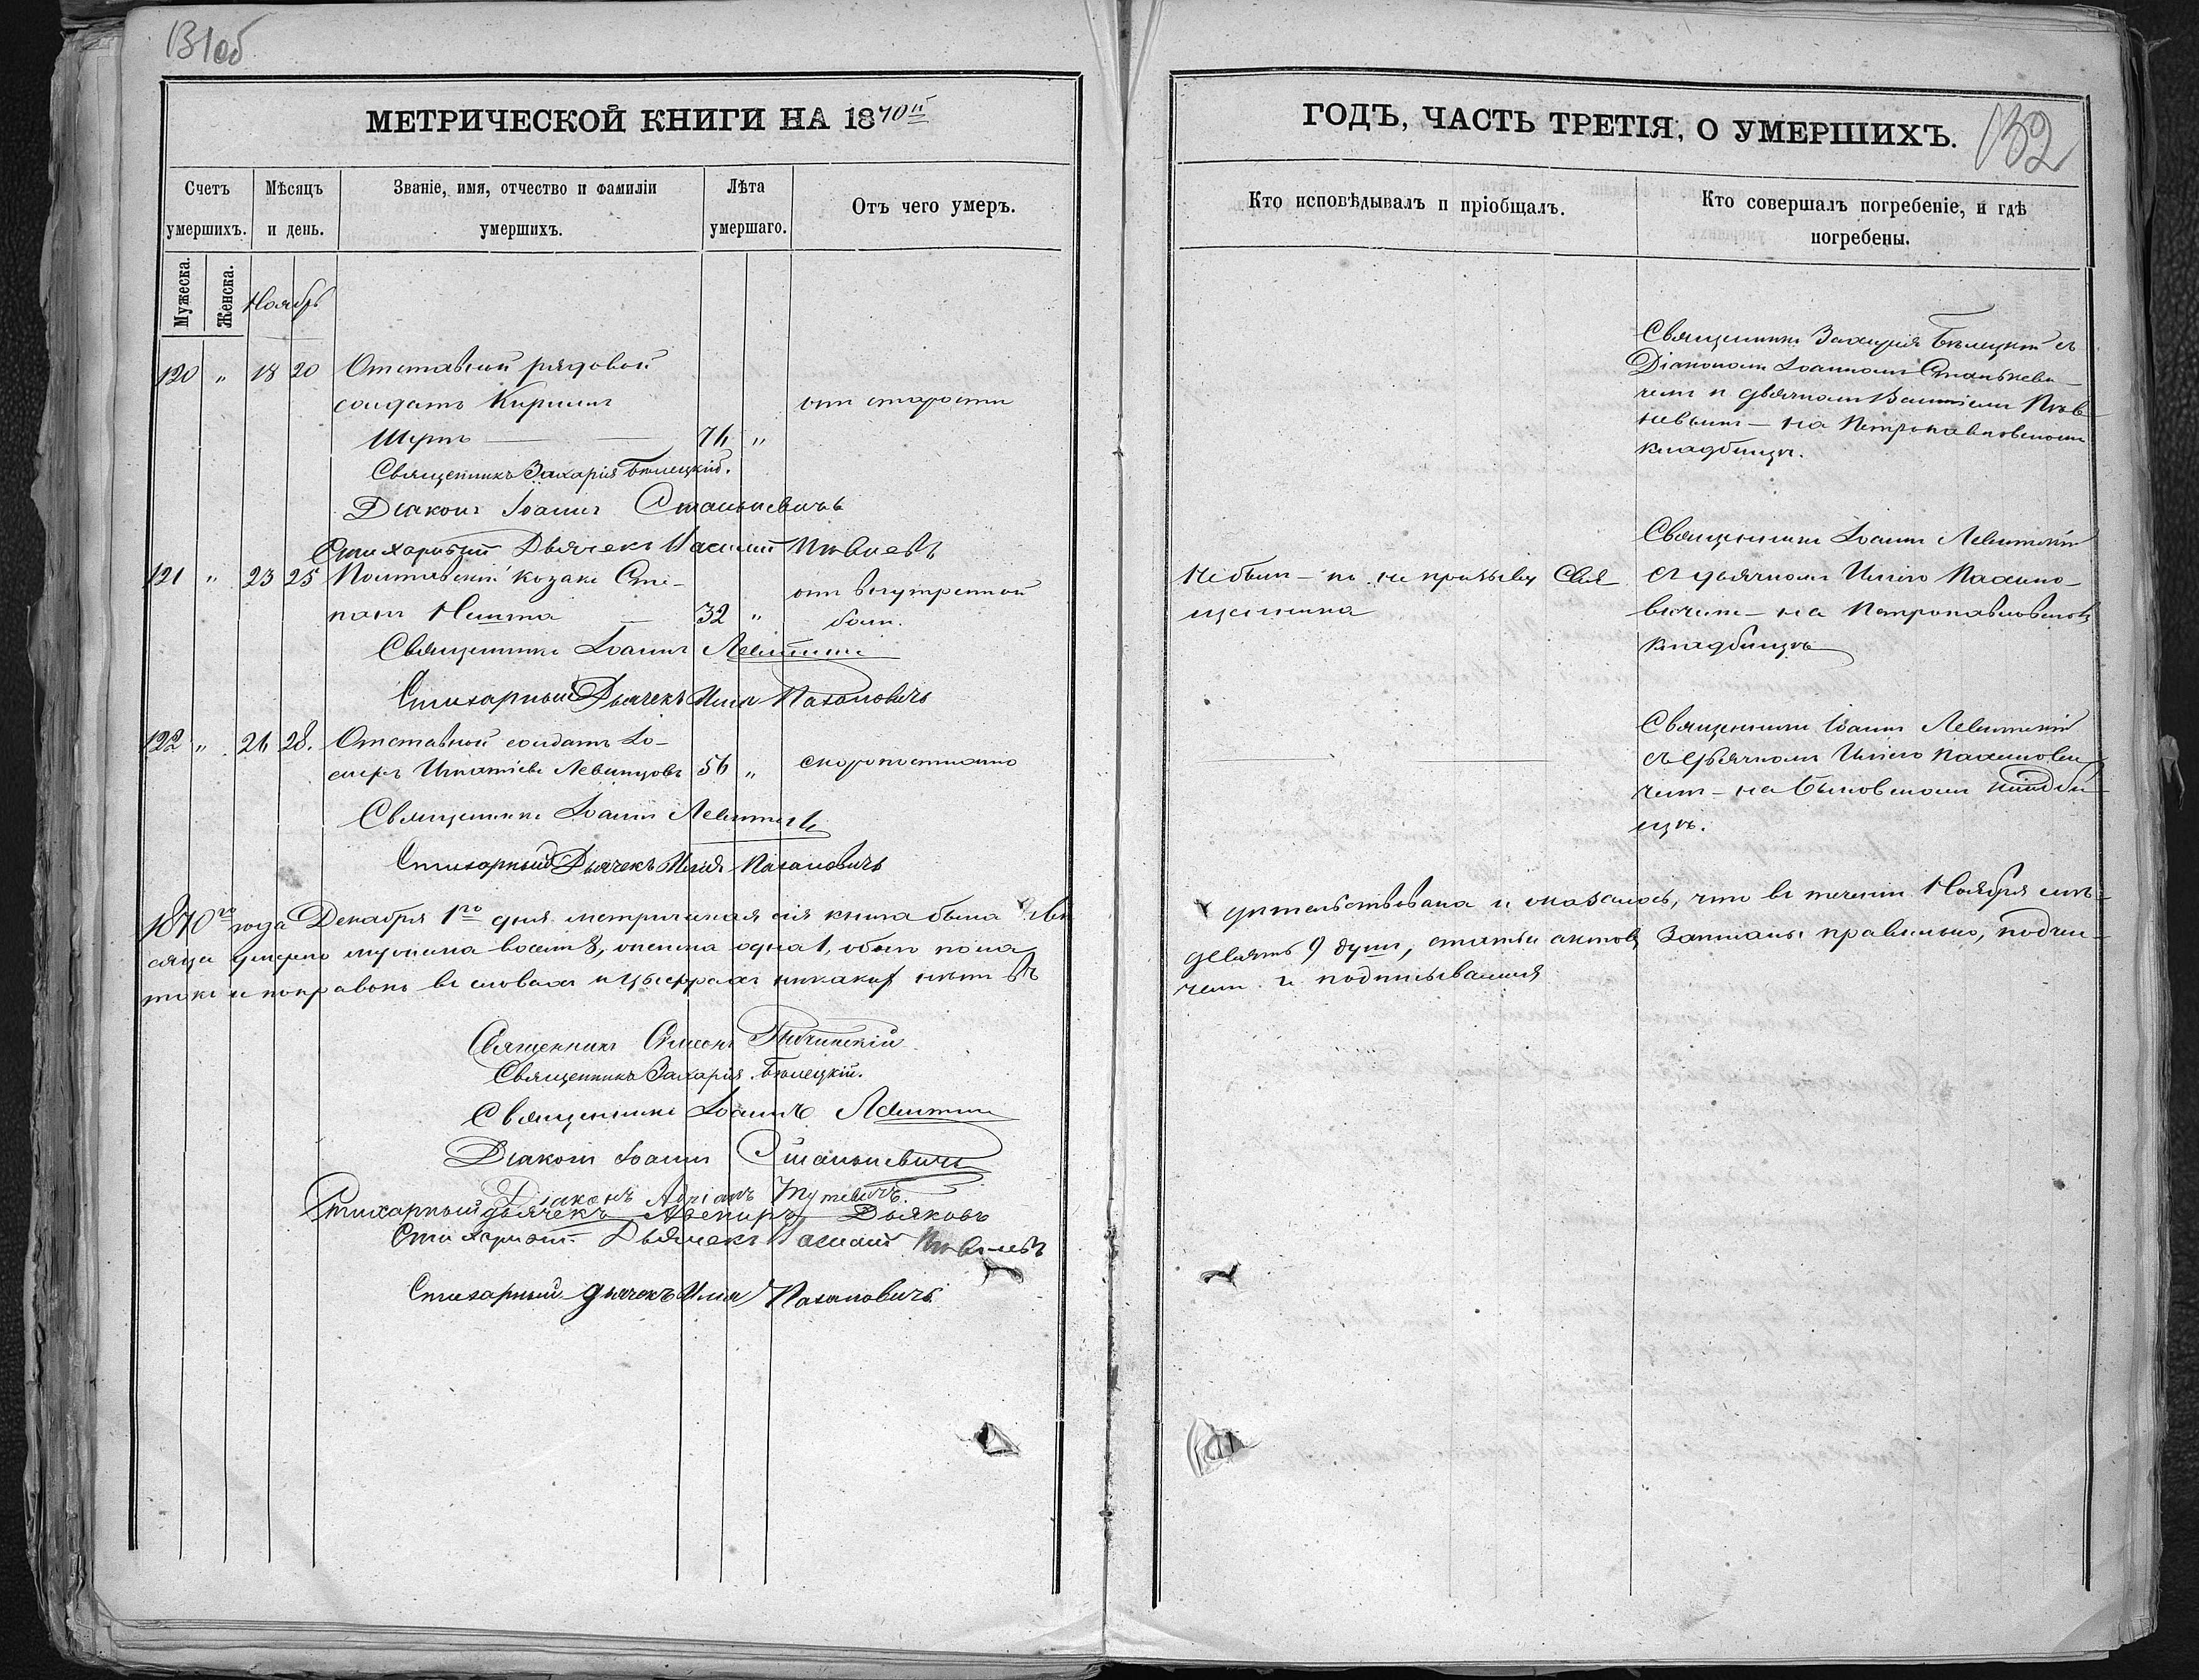 131об
МЕТРИЧЕСКОЙ КНИГИ НА 1870й
Счетъ умершихъ.
Мѣсяцъ и день.
Званіе, имя, отчество и фамиліи умершихъ.
Лѣта умершаго.
Отъ чего умеръ.
Мужеска.
Женска.
Ноябрь
120 " 18 20 Отставной рядовой
солдатъ Кириллъ отъ старости
Шутъ 76 "
Священникъ Захарія Бѣлецкій.
Діаконъ Іоаннъ Станкевичъ
Стихарный Дьячекъ Василій
121 " 23 25 Полтавскій козакъ Сте-
панъ 32 " отъ внутренной
боли.
Священникъ Іоаннъ Левитскій
Стихарный Дьячекъ Илія Пахаловичъ
122 " 26 28. Отставной солдатъ Іо-
сифъ Игнатіевъ Левинцовъ 56 " скоропостижно
Священникъ Іоаннъ Левитскій
Стихарный Дьячекъ Илія Пахаловичъ
1870го года Декабря 1го дня метрическая сія книга была сви
сяцѣ умерло мужеска восемь 8, женска одна 1, обоего пола
тки и поправокъ въ словахъ и цыфрахъ никакихъ нѣтъ въ
Священникъ Симеонъ
Священникъ Захарія Бѣлецкій.
Священникъ Іоаннъ Левитскій
Діаконъ Іоаннъ Станкевичъ
Діаконъ Адріанъ
Стихарный дьячекъ Авениръ Дьяковъ
Стихарный Дьячекъ Василій
Стихарный дьячекъ Илія Пахаловичъ
ГОДЪ, ЧАСТЬ ТРЕТІЯ, О УМЕРШИХЪ.
132
Кто исповѣдывалъ и пріобщалъ.
Кто совершалъ погребеніе, и гдѣ
погребены.
Священникъ Захарія Бѣлецкій съ
Діакономъ Іоанномъ Станкеви-
чемъ и дьячкомъ Василіемъ
на Петропавловскомъ
кладбищѣ.
Не былъ по не призыву Свя
щенника
Священникъ Іоаннъ Левитскій
съ дьячкомъ Иліею Пахало-
вичемъ на Петропавловскомъ
кладбищѣ
Священникъ Іоаннъ Левитскій
съ дьячкомъ Иліею Пахалови
чемъ на кладби
щѣ.
дѣтельствована и оказалось, что въ теченіи Ноября мѣ-
девять 9 душъ, статьи актовъ записаны правильно, подчи-
чемъ и подписываемся